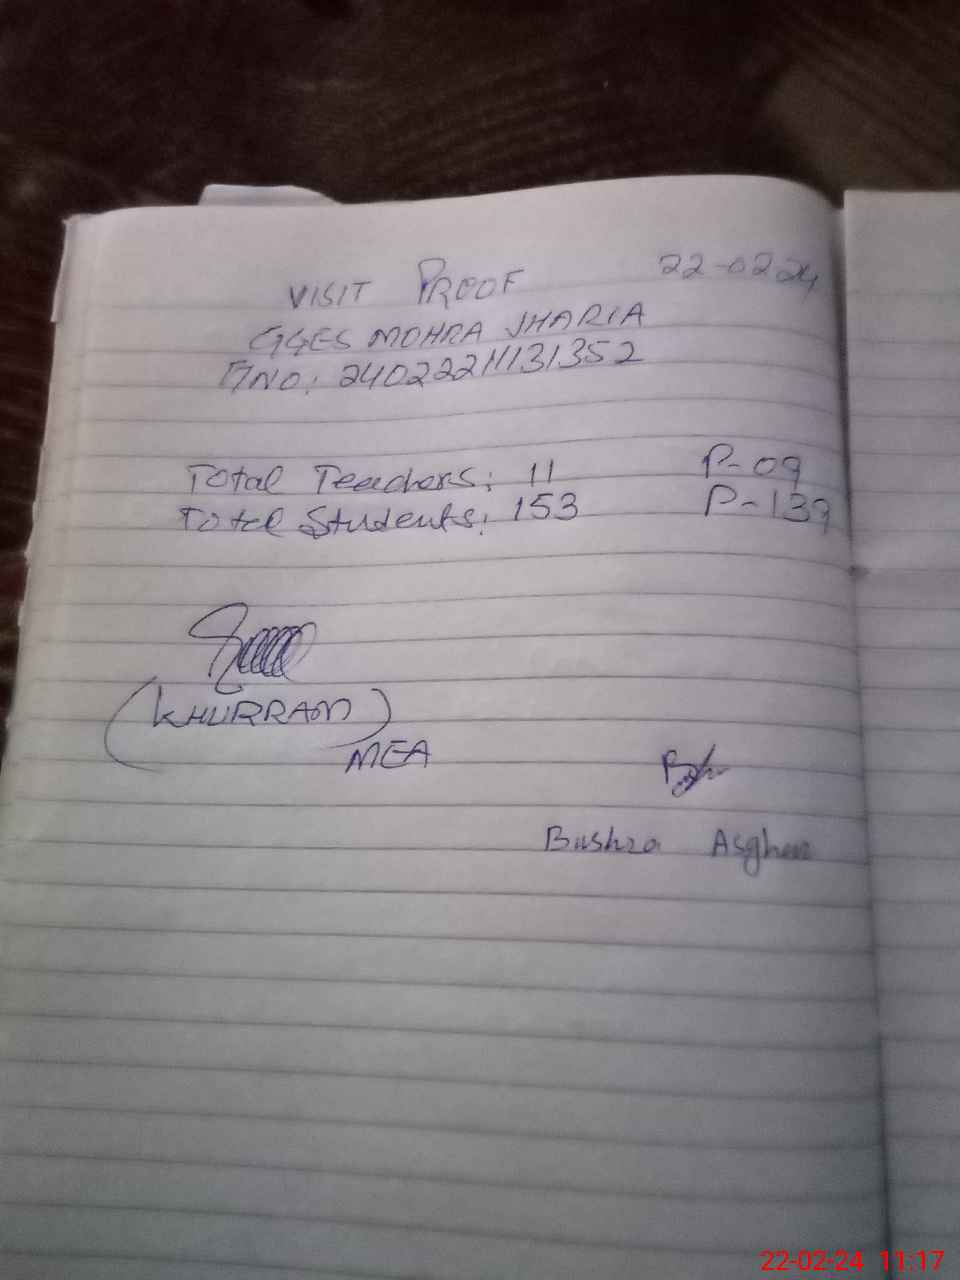 VISIT PROOF 22-02-24
GGES MOHRA JHARIA
24022211131352
Total Teachers: 11 P-09
Total Students: 153 P-139
(KHURRAM)
MEA
Bushra Asghar
22-02-24 11:17